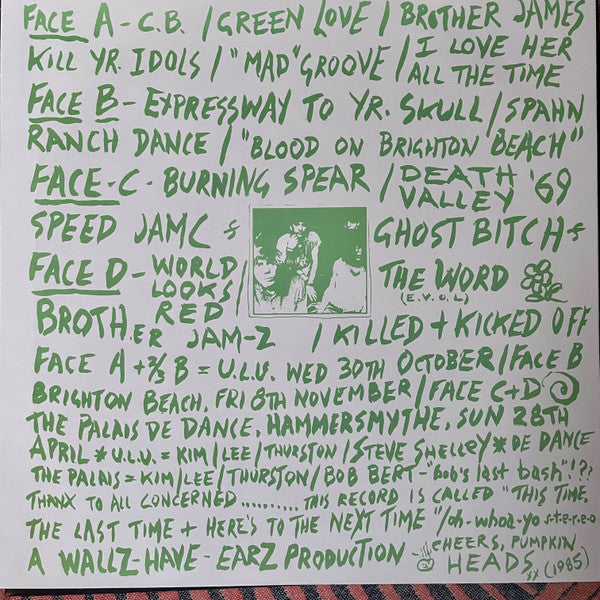 FACE A - C.B. / GREEN LOVE / BROTHER JAMES
KILL YR. IDOLS / "MAD" GROOVE / I LOVE HER
ALL THE TIME
FACE B - EXPRESSWAY TO YR. SKULL / SPAHN
RANCH DANCE / "BLOOD ON BRIGHTON BEACH"
FACE - C - BURNING SPEAR / DEATH
VALLEY '69
SPEED JAMC & GHOST BITCH &
FACE D - WORLD
LOOKS
RED / THE WORD
(E.V.O.L)
BROTHER JAM-Z / KILLED + KICKED OFF
FACE A + ⅔ B = U.L.U. WED 30TH OCTOBER / FACE B
BRIGHTON BEACH, FRI 8TH NOVEMBER / FACE C+D
THE PALAIS DE DANCE, HAMMERSMYTHE, SUN 28TH
APRIL * U.L.U. = KIM / LEE / THURSTON / STEVE SHELLEY * DE DANCE
THE PALAIS = KIM / LEE / THURSTON / BOB BERT - "bob's last bash" !??
THANX TO ALL CONCERNED.......... THIS RECORD IS CALLED "THIS TIME,
THE LAST TIME + HERE'S TO THE NEXT TIME" / oh-whoa-yo s-t-e-r-e-o
CHEERS, PUMPKIN
A WALLZ-HAVE-EARZ PRODUCTION HEADS xx (1985)